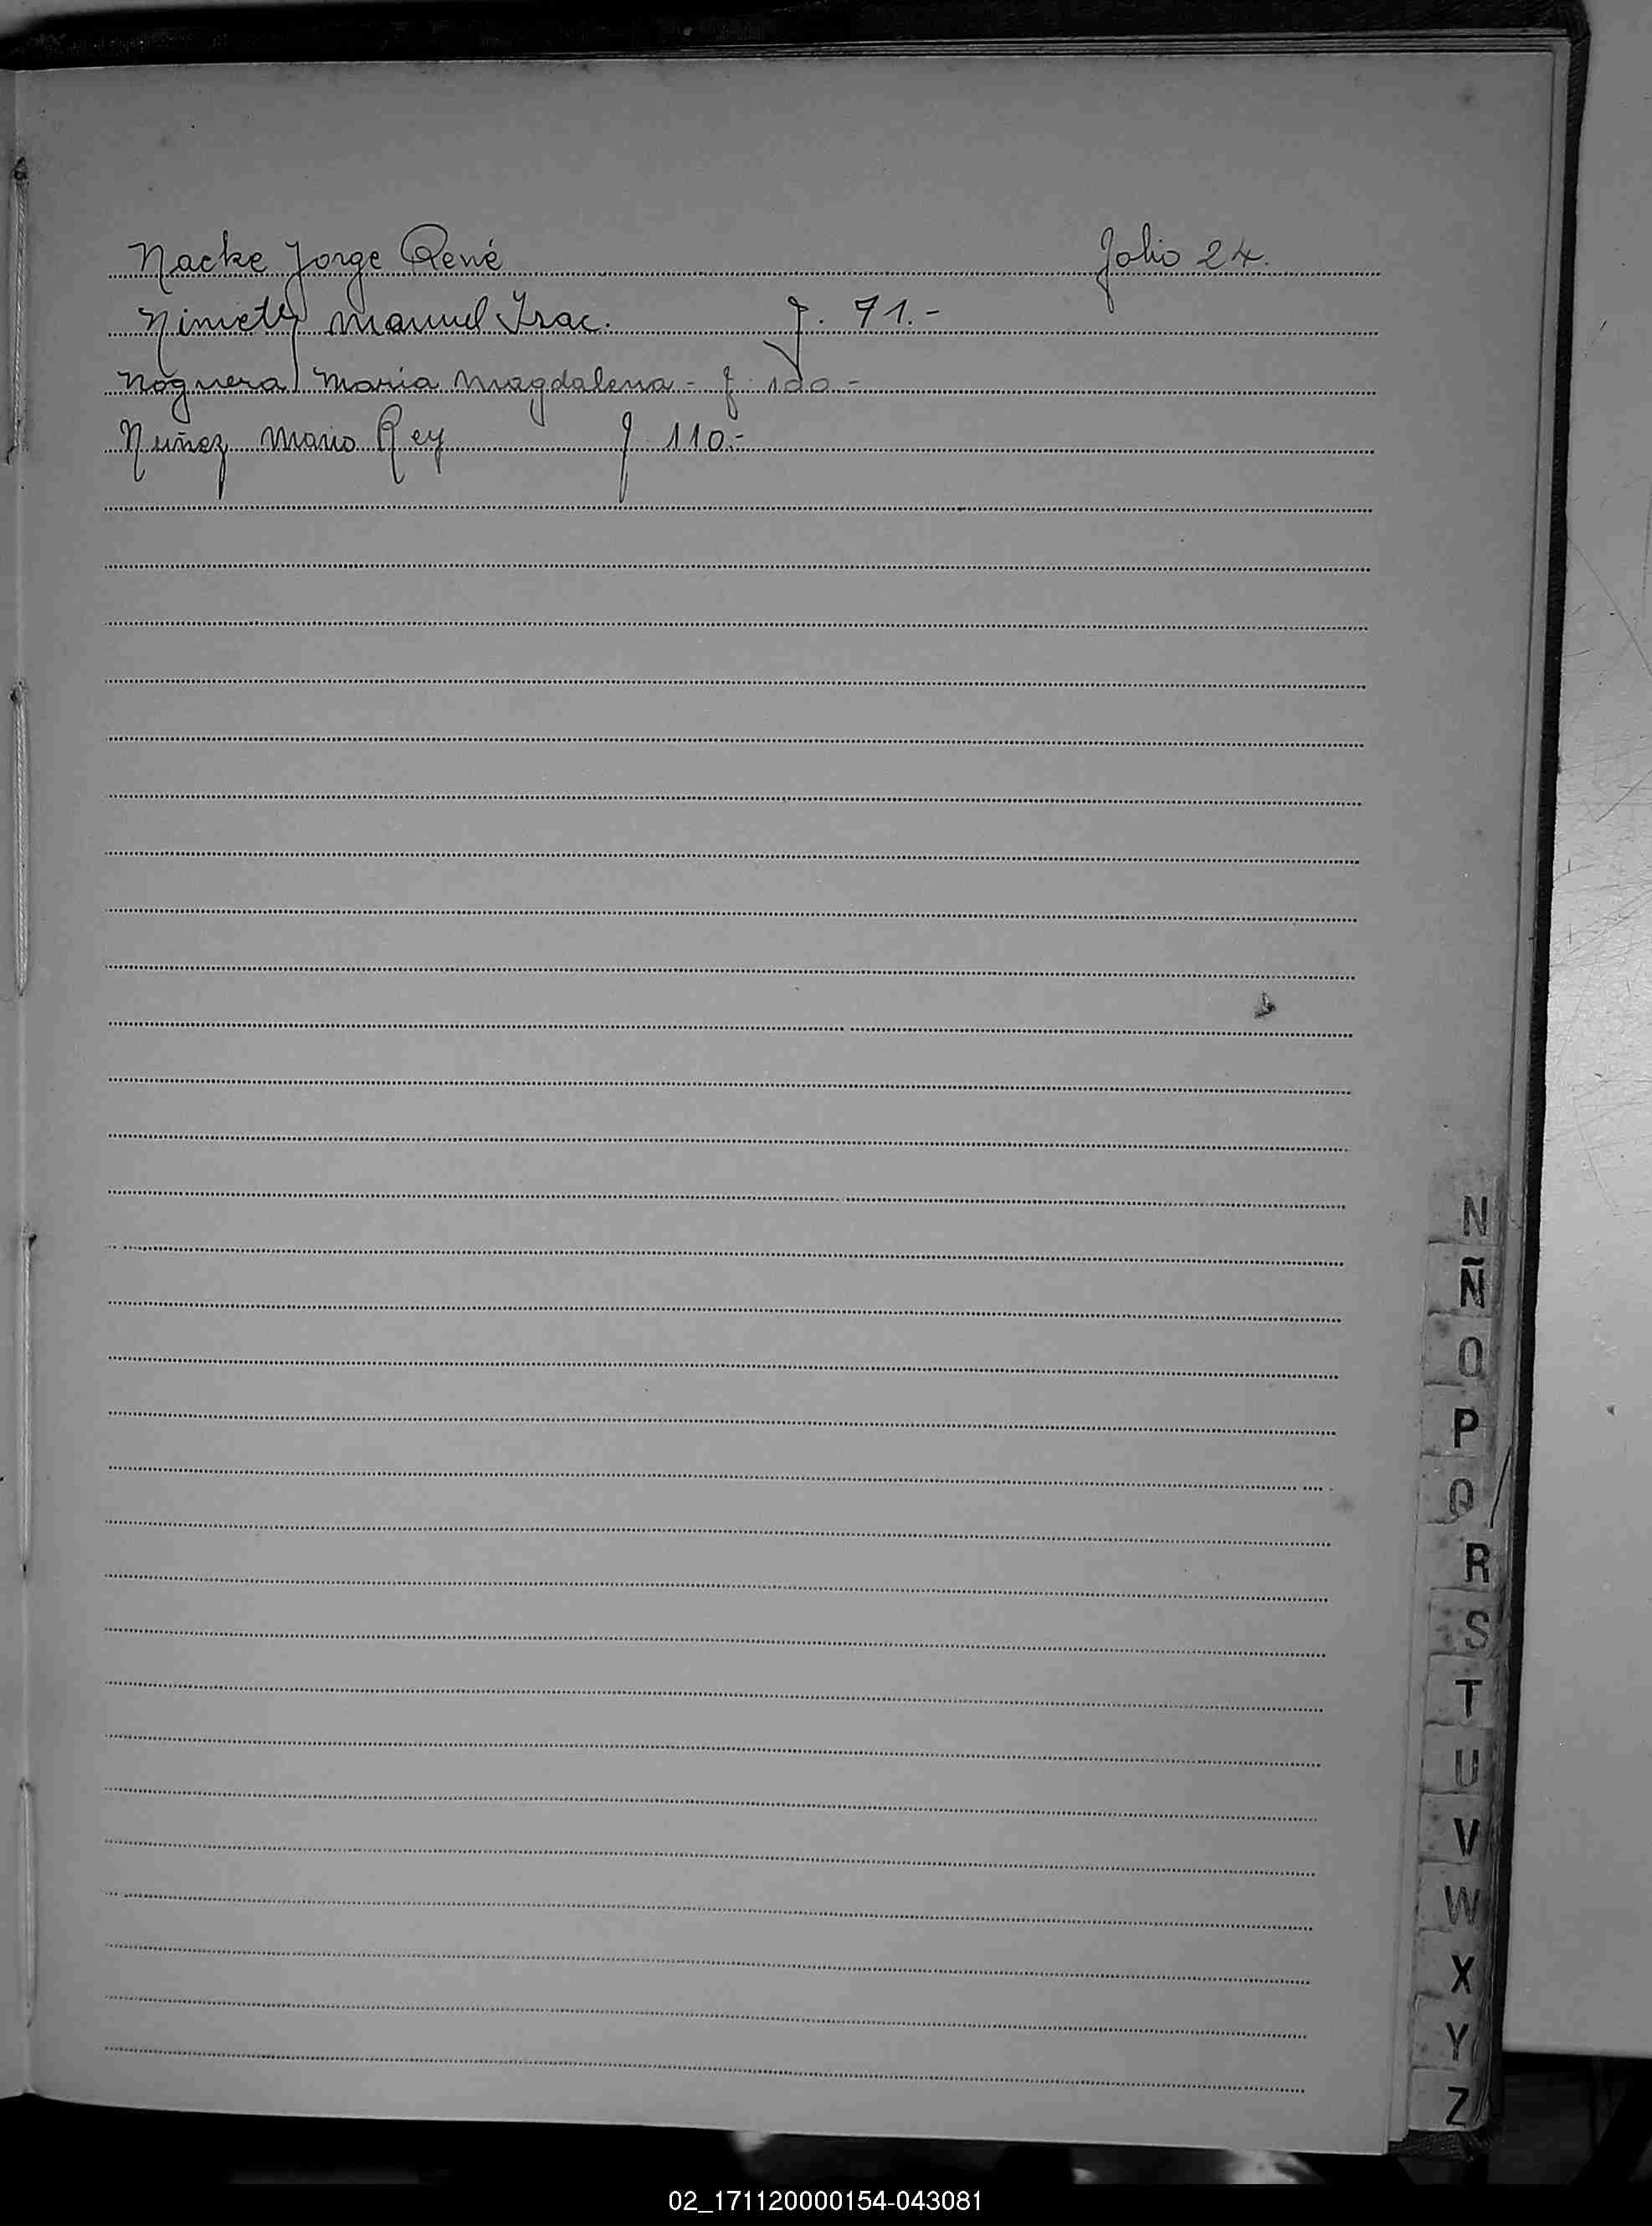 Nacke Jorge René folio 24.
Manuel Isac. f. 71.-
Noguera María Magdalena - f. 100 -
Nuñez Mario Rey f 110.-
N
Ñ
O
P
Q
R
S
T
U
V
W
X
Y
Z
02_171120000154-043081